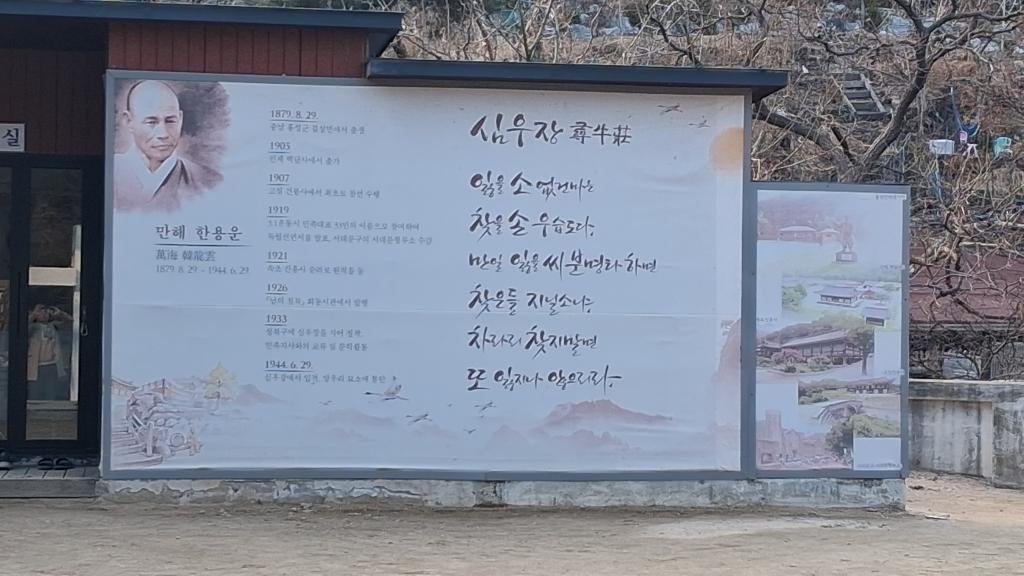 실
만해 한용운
萬海 韓龍雲
1879. 8. 29. - 1944. 6. 29.
1879. 8. 29.
충남 홍성군 결성면에서 출생
1905
인제 백담사에서 출가
1907
고성 건봉사에서 최초로 참선 수행
1919
3.1운동시 민족대표 33인의 이름으로 참여하여
독립선언서를 발표, 서대문구의 서대문형무소 수감
1921
1926
『님의 침묵』 회동서관에서 발행
1933
성북구에 심우장을 지어 정착,
민족지사와의 교류 및 문학활동
1944. 6. 29.
심우장에서 입적, 망우리 묘소에 봉안
심우장 尋牛莊
잃을 소 없건마는
찾을 손 우습도다;
만일 잃을 씨 분명타 하면
찾은들 지닐소냐;
차라리 찾지말면
또 잃지나 않으리라;